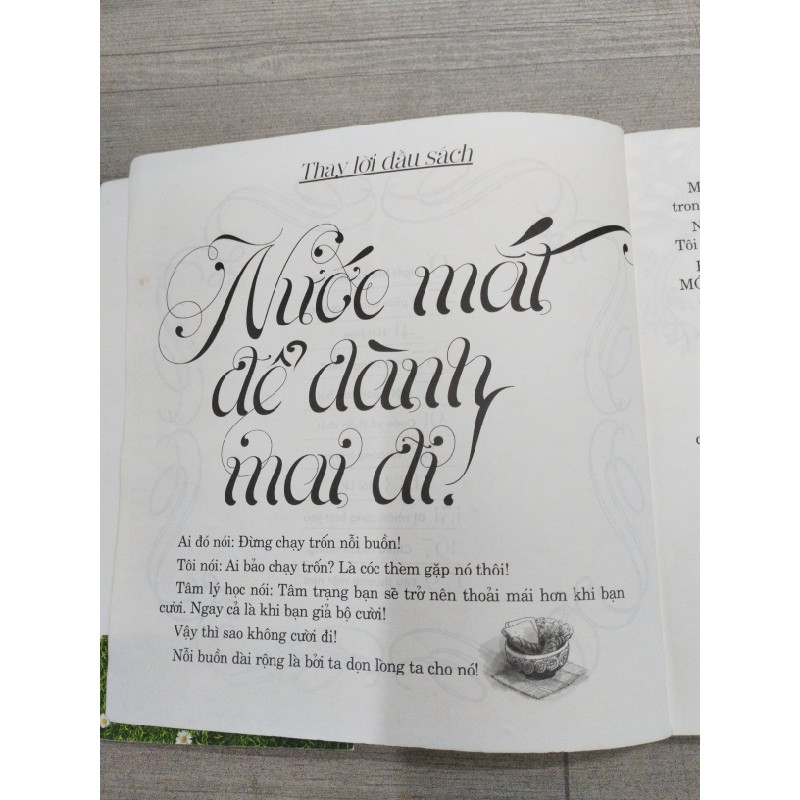 Thay lời đầu sách
Nước mắt
để dành
mai đi!
Ai đó nói: Đừng chạy trốn nỗi buồn!
Tôi nói: Ai bảo chạy trốn? Là cóc thèm gặp nó thôi!
Tâm lý học nói: Tâm trạng bạn sẽ trở nên thoải mái hơn khi bạn
cười. Ngay cả là khi bạn giả bộ cười!
Vậy thì sao không cười đi!
Nỗi buồn dài rộng là bởi ta dọn lòng ta cho nó!
Tôi